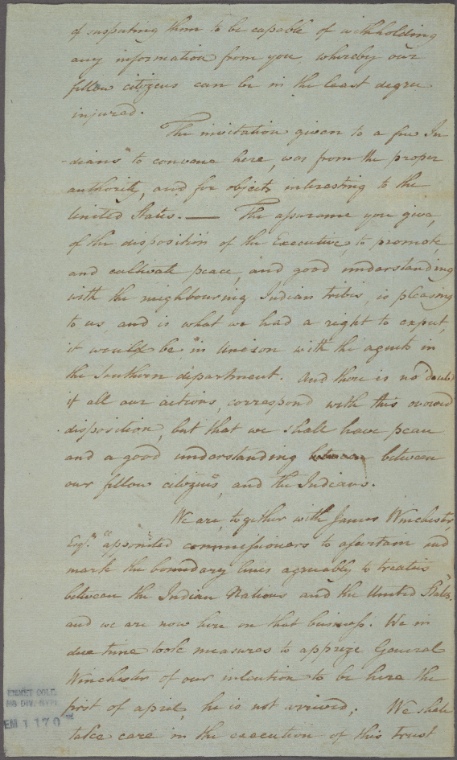 of suspecting them to be capable of withholding
any information from you, whereby our
fellow citizens can be in the least degree
injured.
"The invitation given to a few In
dians" to convene here, was from the proper
authority, and for objects interesting to the
United States. — The assurance you give,
of the disposition of the Executive, to promote
and cultivate peace, and good understanding
with the neighbouring Indian tribes, is pleasing
to us, and is what we had a right to expect,
it would be "in unison with the agents in
the Southern department. And there is no doubt
if all our actions, correspond with this avowed
disposition, but that we shall have peace
and a good understanding between
our fellow citizens, and the Indians.
We are, together with James Winchester,
Esqr. "appointed commissioners to ascertain and
mark the boundary lines agreeably to treaties
between the Indian Nations and the United States,"
and we are now here on that business. We in
due time took measures to apprize General
Winchester of our intention to be here the
first of april, he is not arrived; We shall
take care in the execution of this Trust
EM 1170